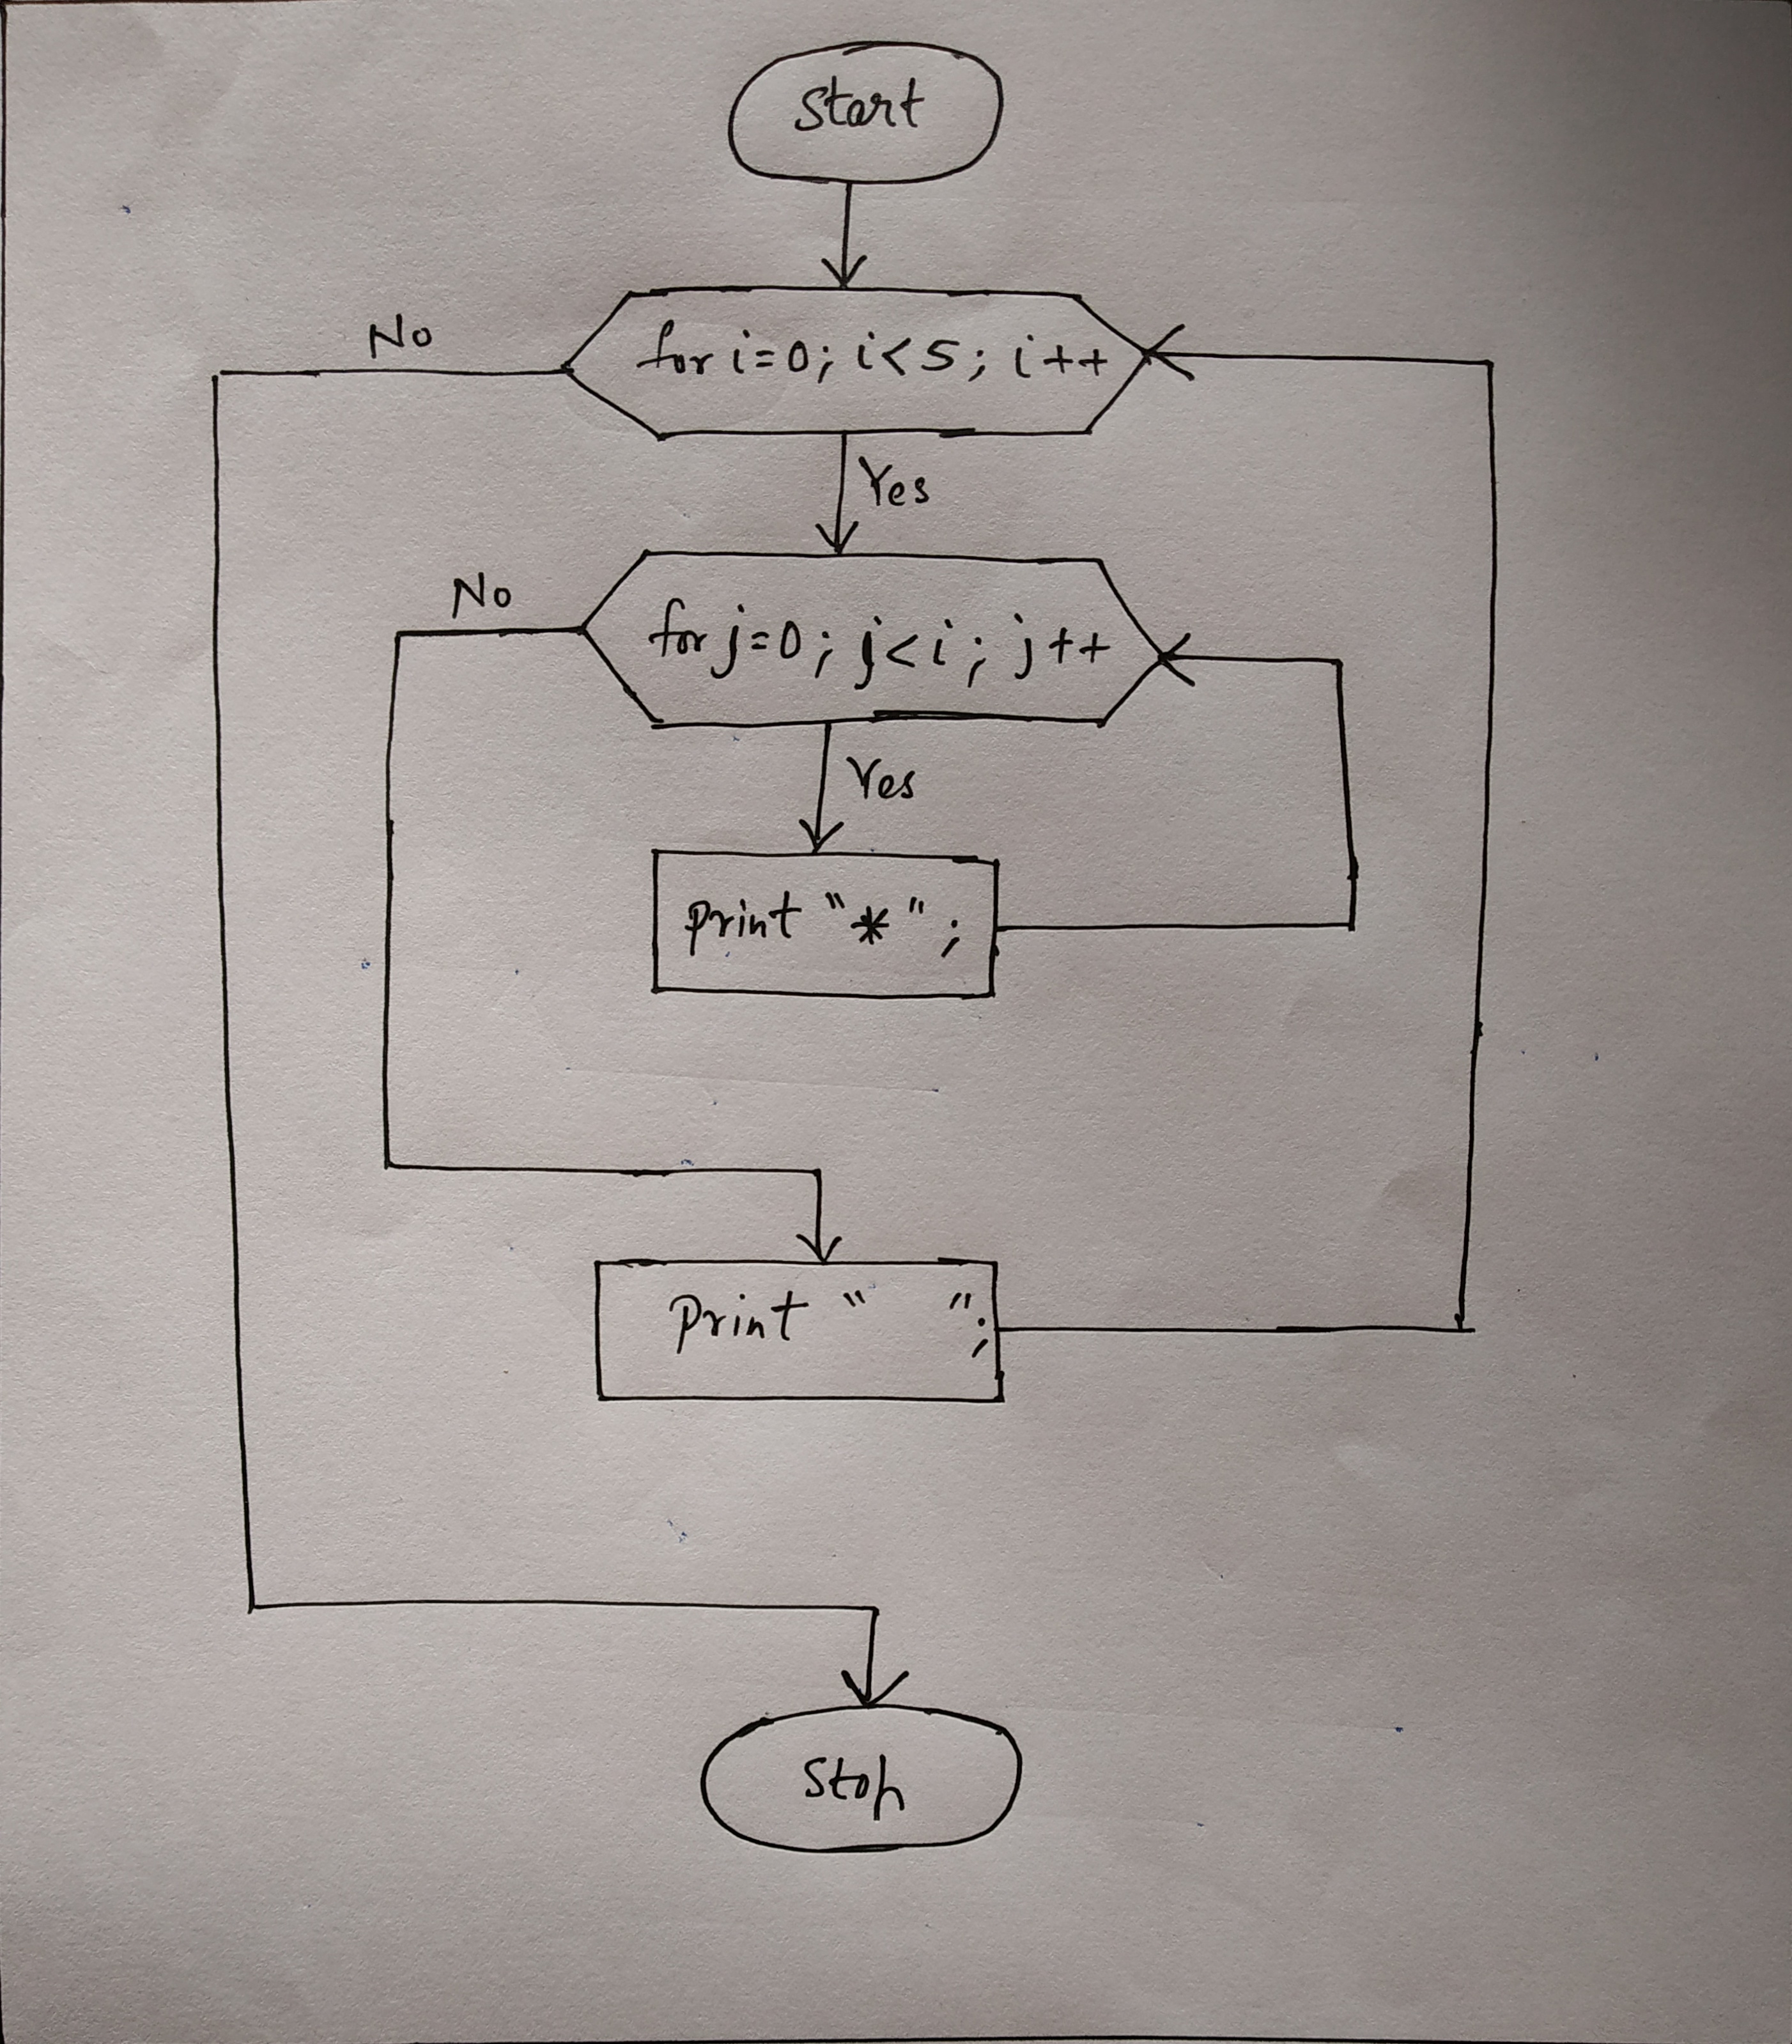 Start
No
for i=0; i<5; i++
Yes
No
for j=0; j<i; j++
Yes
print "*";
Print "    ";
Stop